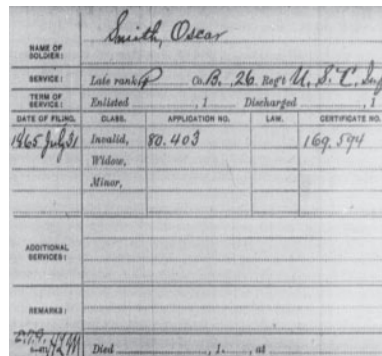 NAME OF SOLDIER: Smith, Oscar
SERVICE: Late rank P Co. B, 26 Regt U. S. C. Inf
TERM OF SERVICE: Enlisted , 1 Discharged , 1
DATE OF FILING. CLASS. APPLICATION NO. LAW. CERTIFICATE NO.
1865 July 31 Invalid, 80.403 169.594
Widow,
Minor,
ADDITIONAL SERVICES:
REMARKS:
Died , 1 , at